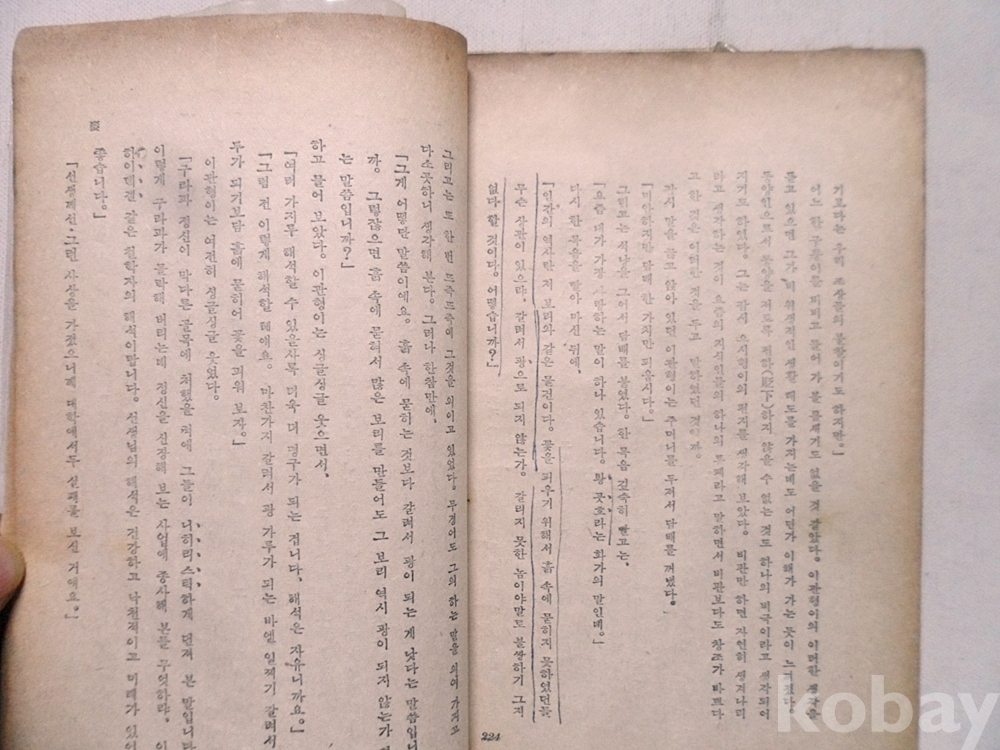 기보다는 우리 조상들의 불찰이기도 하지만.」
어느 한 구통이를 비비고 들어 가 볼 틈새기도 없을 것 같았다. 이관형이의 이러한 생각을
듣고 있으면 그가 비위생적인 생활 태도를 가지는데도 어덴가 이해가 가는 듯이 느껴졌다.
동양인으로서 동양을 저토록 폄하(貶下)하지 않을 수 없는 것도 하나의 비극이라고 생각되어
지기도 하였다. 그는 잠시 오시형이의 편지를 생각해 보았다. 비판만 하면 자연히 생겨나리
라고 생각하는 것이 요즘의 지식인들의 하나의 통폐라고 말하면서 비판보다도 창조가 바쁘다
고 한 것은 이러한 것을 두고 말하였던 것인가.
다시 말을 끊고 앉아 있던 이관형이는 주머니를 뒤져서 담배를 꺼냈다.
「미안하지만 담배 한 가치만 피웁시다.」
그리고는 석냥을 그어서 담배를 붙였다. 한 목음 깊숙히 빨고는,
「요즘 내가 가장 사랑하는 말이 하나 있습니다. 황 곳호라는 화가의 말인데.」
다시 한 목음을 빨아 마신 뒤에,
「인간의 역사란 저 보리와 같은 물건이다. 꽃을 피우기 위해서 흙 속에 묻히지 못하였던들
무슨 상관이 있으랴. 갈려서 빵으로 되지 않는가. 갈리지 못한 놈이야말로 불쌍하기 그지
없다 할 것이다. 어떻습니까?」
224
그리고는 또 한 번 느즉느즉이 그것을 외이고 있었다. 무경이도 그의 하는 말을 외어 가지고
다소곳하니 생각해 본다. 그러나 한참만에,
「그게 어떻단 말씀이에요. 흙 속에 묻히는 것보다 갈려서 빵이 되는 게 낫다는 말씀입니
까. 그렇잖으면 흙 속에 묻혀서 많은 보리를 만들어도 그 보리 역시 빵이 되지 않는가
는 말씀입니까?」
하고 물어 보았다. 이관형이는 싱글싱글 웃으면서,
「여러 가지루 해석할 수 있을사록 더욱 더 명구가 되는 겝니다. 해석은 자유니까요.」
「그럼 전 이렇게 해석할 테애요. 마찬가지 갈려서 빵 가루가 되는 바엔 일찌기 갈려서
루가 되기보담 흙에 묻히어 꽃을 피워 보자.」
이관형이는 여전히 싱글싱글 웃었다.
「구라파 정신이 막다른 골목에 처했을 때에 그들이 니히리스틱하게 던져 본 말입니다
이렇게 구라파가 몰락해 버리는데 정신을 신장해 보는 사업에 종사해 본들 무엇하랴.
하이델겔 같은 철학자의 해석이랍니다. 선생님의 해석은 건강하고 낙천적이고 미래가 있어
좋습니다.」
「선생께선 그런 사상을 가졌으니께 대학에서두 실패를 보신 거애요.」
kobay